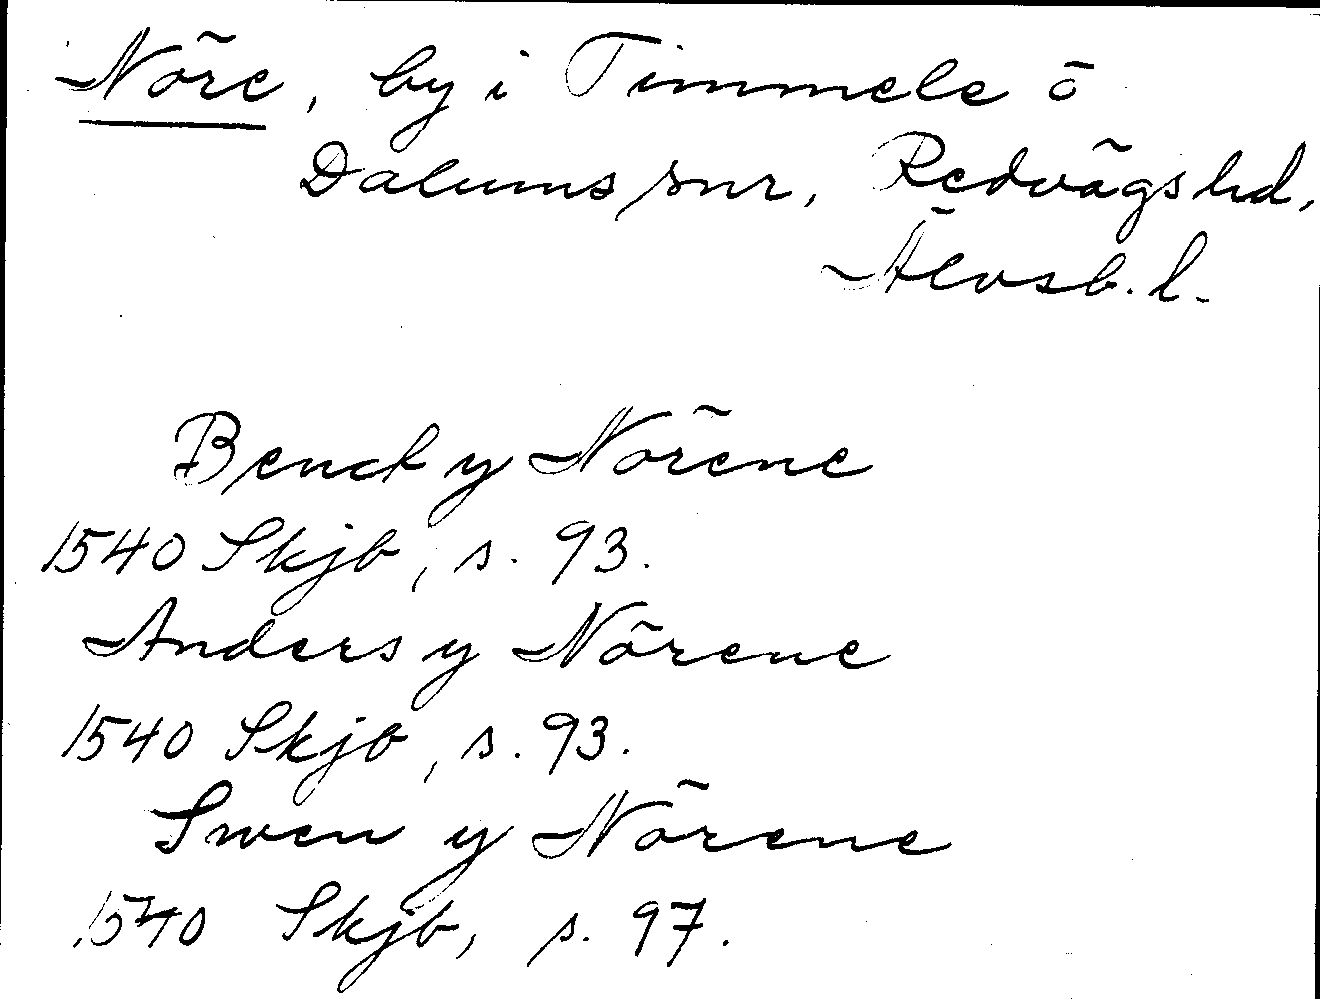 Nöre, by i Timmele o
Dalums snr, Redvägs hd,
Älvsb. l.
Benct y Nörene
1540 Skjb, s. 93.
Anders y Nörene
1540 Skjb, s. 93.
Swen y Nörene
1540 Skjb, s. 97.